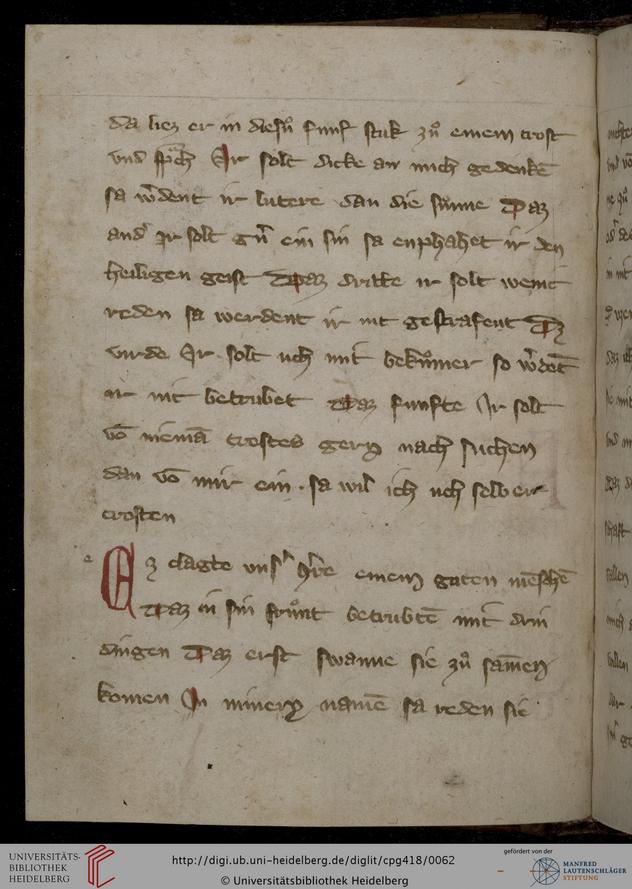 da liez er in diesu͛ funf stuk zuͦ einem trost
vnd sp̈ͣch Ir solt dicke an mich gedenkē
sa w͛dent ir lutere dan die sunne Daz
and͛ ir solt g͛n ein sin sa enphahet ir den
heiligen geist Daz dritte ir solt wenic
reden sa werdent ir nit gestrafent Dz
virde Ir solt uch nit bekumer so w͛dēt
ir nit betrubet Daz funfte Ir solt
vō niemā trostes gern nach suchen
dan vō mir ein . sa wil ich uch selber
trosten
e
Ez clagte vns͛ h͛re einem guten mēschē
Daz in sin fruͦnt betrubtē mit drin
dingen Daz erst swanne sie zuͦ samen
komen In minem namē sa reden sie
UNIVERSITÄTS-
BIBLIOTHEK
HEIDELBERG
http://digi.ub.uni-heidelberg.de/diglit/cpg418/0062
© Universitätsbibliothek Heidelberg
gefördert von der
MANFRED
LAUTENSCHLÄGER
STIFTUNG